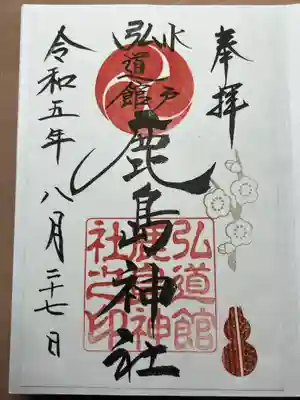 奉拝
水戸
弘道館
鹿島神社
弘道館
鹿島神
社之印
令和五年 八月 二十七日